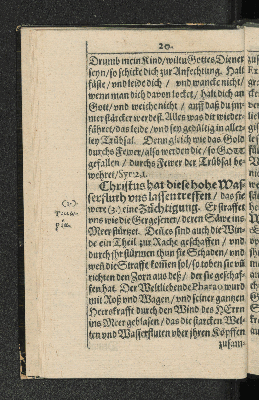 20.
Drumb mein Kind/ wiltu Gottes Diener
seyn/ so schicke dich zur Anfechtung. Halt
feste/ und leide dich / und wancke nicht/
wenn man dich davon locket/ halt dich an
Gott/ und weiche nicht / auff daß du jm-
mer stärcker werdest. Alles was dir wieder-
fähret/ das leide/ und sey gedültig in aller-
ley Trübsal. Denn gleich wie das Gold
durchs Fewer/ also werden die/ so GOTT
gefallen / durchs Fewer der Trübsal be-
wehret/ Syr. 2. 1.
Christus hat diese hohe Was-
ser sturtz uns lassen treffen / das sie
were (3.) eine Züchtigung. Er straffet
uns wie die Gergesener/ deren Säwe ins
Meer stürtzet. Deñ es sind auch die Win-
de ein Theil zur Rache geschaffen / und
durch ihr stürmen thun sie Schaden/ und
wen die Straffe kommen sol/ so toben sie uñ
richten den Zorn aus deß / der sie geschaf-
fen hat. Der Weltliebende Pharao wurd
mit Roß und Wagen/ und seiner gantzen
Heereskrafft durch den Wind des HErrn
ins Meer geblasen/ das die starcken Wel-
len und Wasserfluten vber ihren Köpffen
zusam-